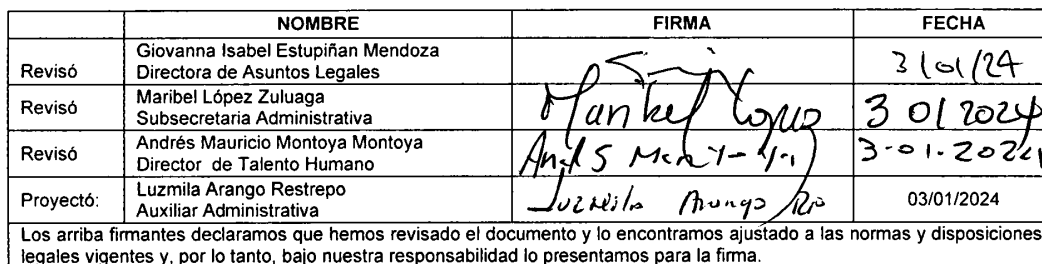 NOMBRE FIRMA FECHA
Revisó Giovanna Isabel Estupiñan Mendoza
Directora de Asuntos Legales 3/01/24
Revisó Maribel López Zuluaga
Subsecretaria Administrativa Maribel López 3 01 2024
Revisó Andrés Mauricio Montoya Montoya
Director de Talento Humano 3-01-2024
Proyectó: Luzmila Arango Restrepo
Auxiliar Administrativa Luzmila Arango 03/01/2024
Los arriba firmantes declaramos que hemos revisado el documento y lo encontramos ajustado a las normas y disposiciones
legales vigentes y, por lo tanto, bajo nuestra responsabilidad lo presentamos para la firma.